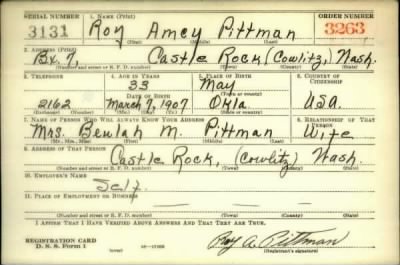 SERIAL NUMBER 1. NAME (Print) ORDER NUMBER
3131 Roy Amcy Pittman 3263
(First) (Middle) (Last)
2. ADDRESS (Print)
Bx. 7, Castle Rock, (Cowlitz) Wash.
(Number and street or R. F. D. number) (Town) (County) (State)
3. TELEPHONE 4. AGE IN YEARS 5. PLACE OF BIRTH 6. COUNTRY OF CITIZENSHIP
33 May
DATE OF BIRTH (Town or county)
2162 March 7, 1907 Okla. U.S.A.
(Mo.) (Day) (Yr.) (State or country)
7. NAME OF PERSON WHO WILL ALWAYS KNOW YOUR ADDRESS 8. RELATIONSHIP OF THAT PERSON
Mrs. Beulah M. Pittman Wife
(Mr., Mrs., Miss) (First) (Middle) (Last)
9. ADDRESS OF THAT PERSON
Castle Rock, (Cowlitz) Wash.
(Number and street or R. F. D. number) (Town) (County) (State)
10. EMPLOYER'S NAME
Self.
11. PLACE OF EMPLOYMENT OR BUSINESS
(Number and street or R. F. D. number) (Town) (County) (State)
I AFFIRM THAT I HAVE VERIFIED ABOVE ANSWERS AND THAT THEY ARE TRUE.
REGISTRATION CARD
D. S. S. Form 1 (over) Roy A. Pittman
(Registrant's signature)